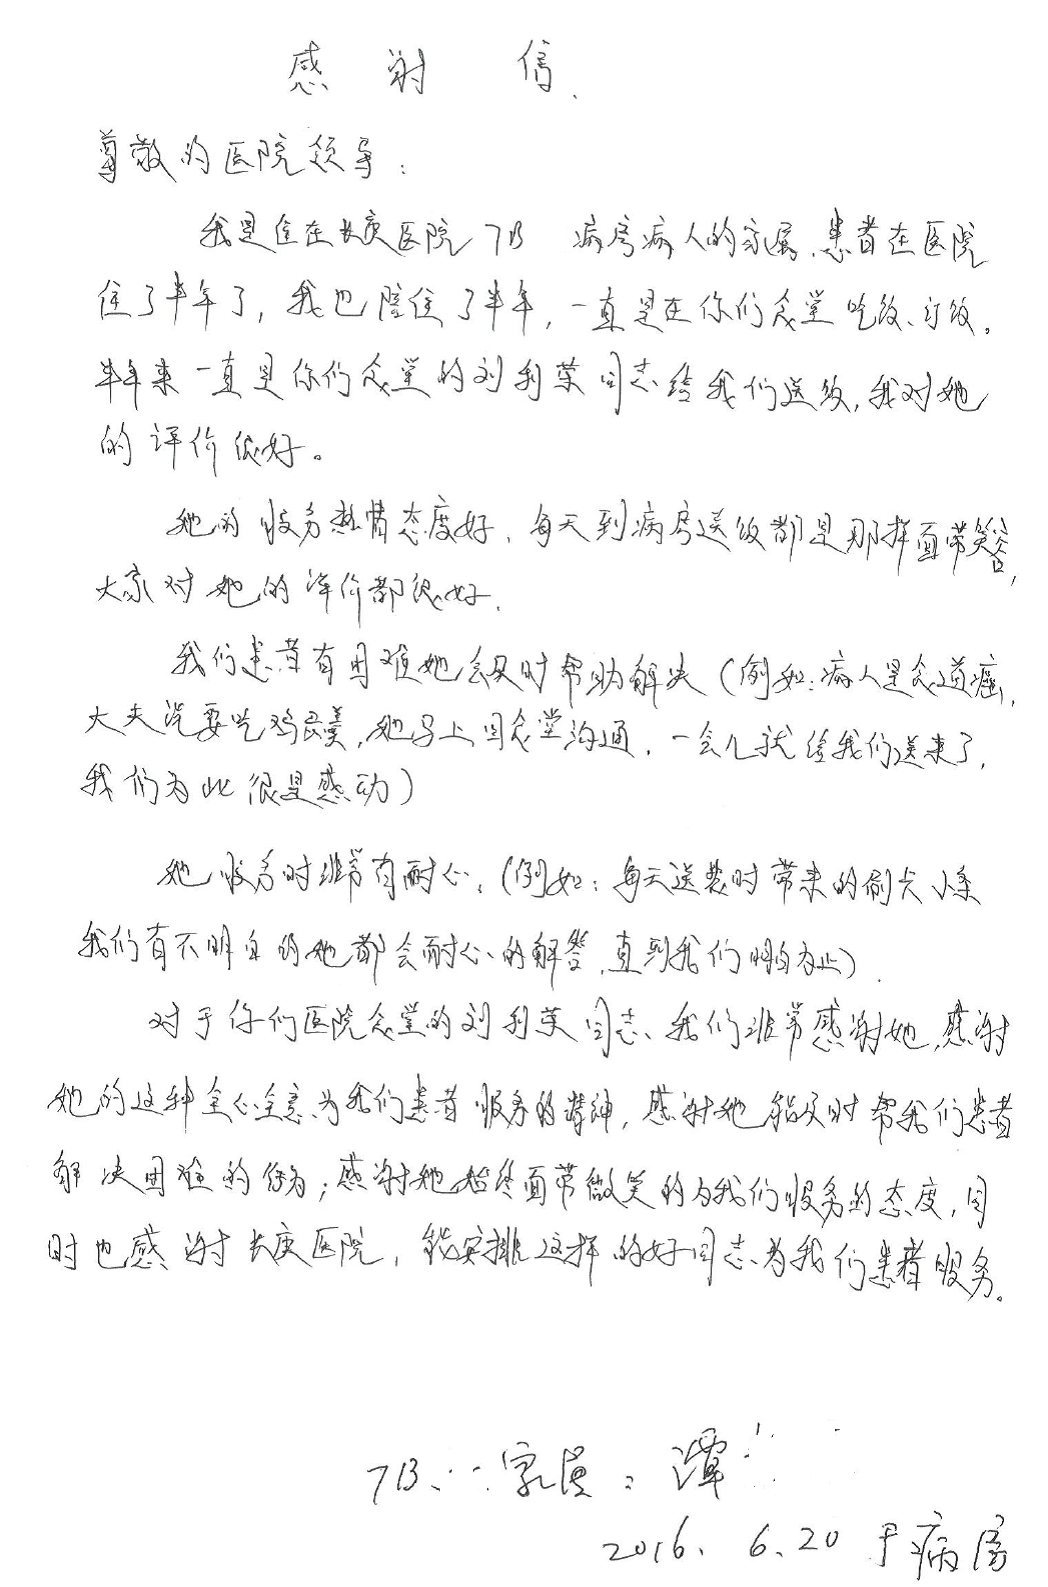 感谢信.
尊敬的医院领导：
我是住在长庚医院7B 病房病人的家属，患者在医院
住了半年了，我也陪住了半年，一直是在你们食堂吃饭、订饭。
半年来一直是你们食堂的刘利荣同志给我们送饭，我对她
的评价很好。
她的服务热情态度好，每天到病房送饭都是那样面带笑容，
大家对她的评价都很好.
我们患者有困难她会及时帮助解决（例如：病人是食道癌，
大夫说要吃鸡蛋羹，她马上同食堂沟通，一会儿就给我们送来了，
我们为此很是感动）
她服务时非常有耐心；（例如：每天送餐时带来的刷卡小条
我们有不明白的她都会耐心的解答，直到我们明白为止）.
对于你们医院食堂的刘利荣同志、我们非常感谢她，感谢
她的这种全心全意为我们患者服务的精神，感谢她能及时帮我们患者
解决困难的行为；感谢她始终面带微笑的为我们服务的态度，同
时也感谢长庚医院，能安排这样的好同志为我们患者服务。
7B、家属：谭
2016、6.20于病房